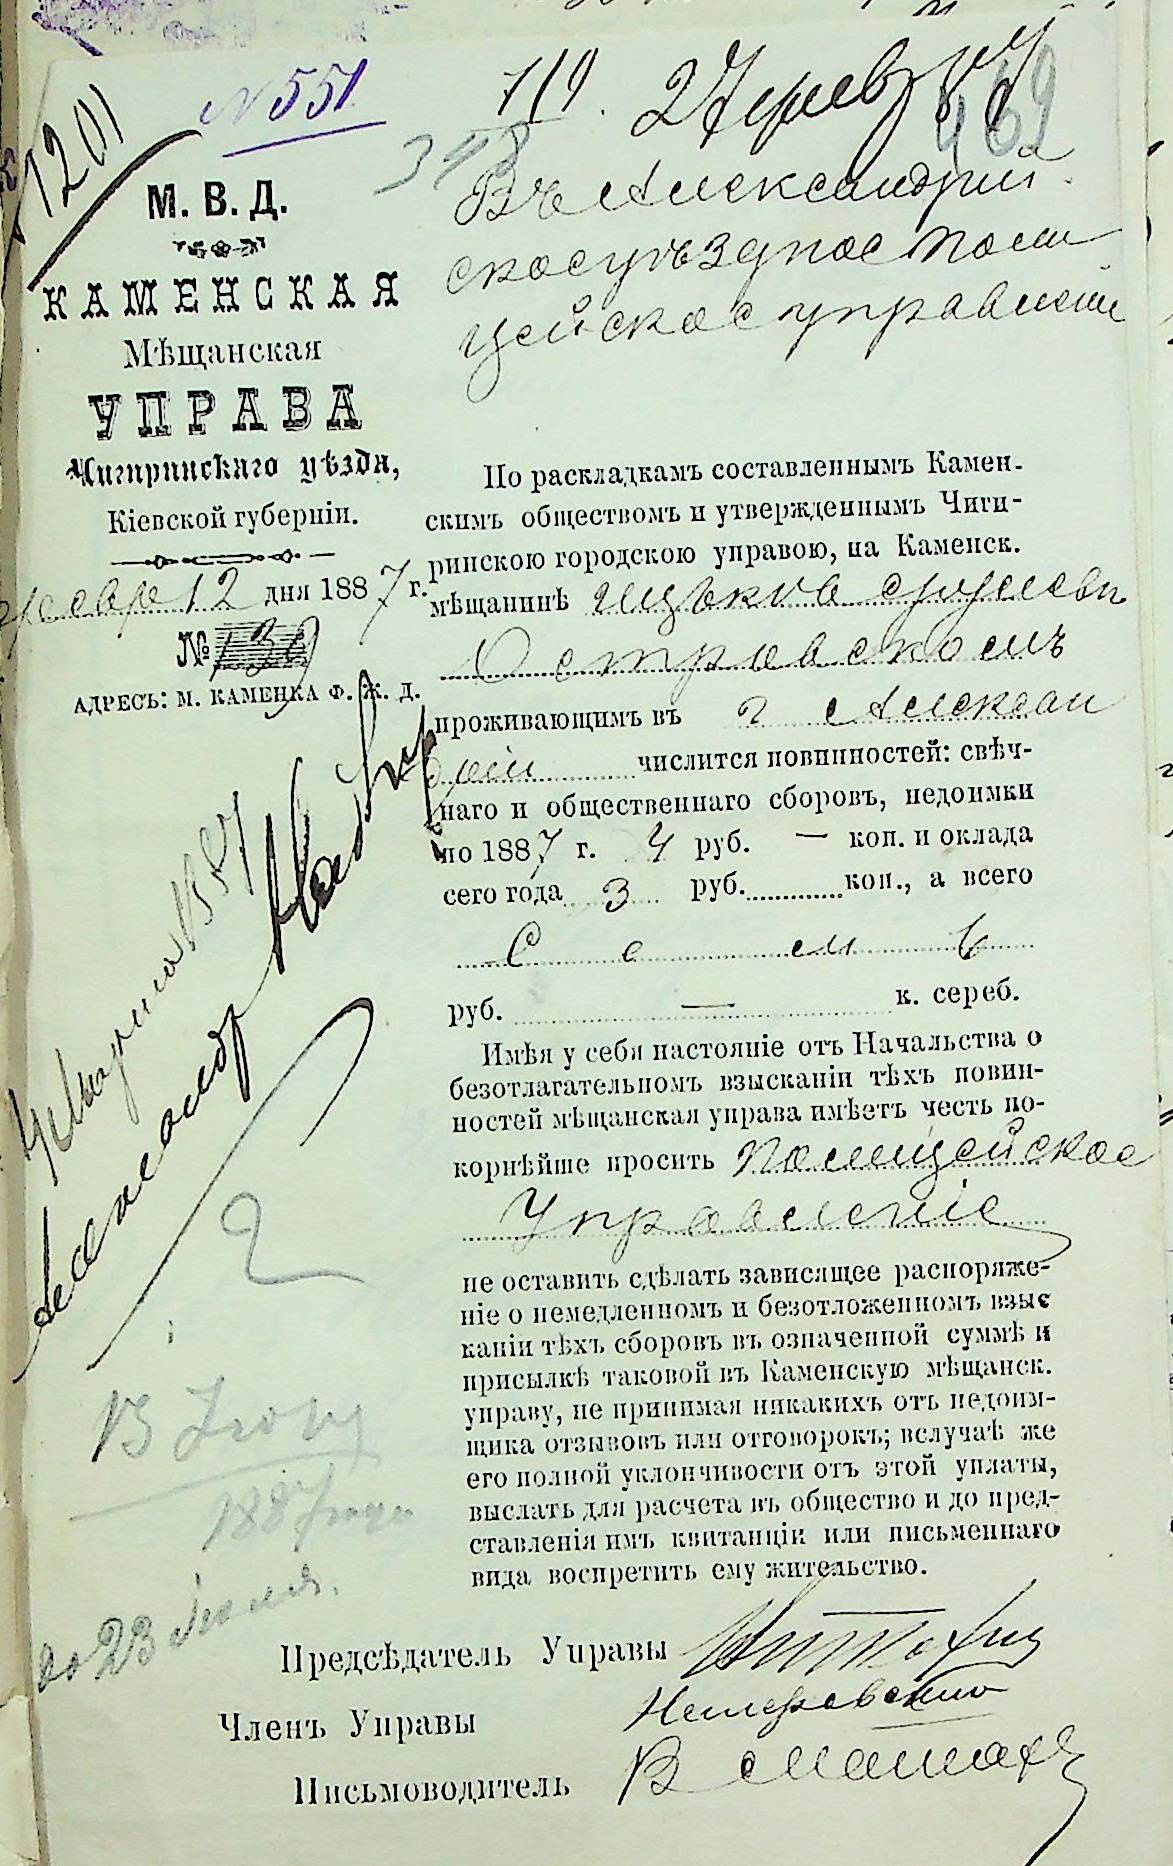 № 551
1201
719. 27 февр 87
348
469
М. В. Д.
КАМЕНСКАЯ
Мѣщанская
УПРАВА
Чигиринскаго уѣзда,
Кіевской губерніи.
февр 12 дня 1887 г.
№ 139
АДРЕСЪ: М. КАМЕНКА Ф. Ж. Д.
Въ Александрій
ское уѣздное поли
цейское управлені
По раскладкамъ составленнымъ Камен-
скимъ обществомъ и утвержденнымъ Чиги-
ринскою городскою управою, на Каменск.
мѣщанинѣ Ицькѣ
Островскомъ
проживающимъ въ г Алексан
дріи числится повинностей: свѣч-
наго и общественнаго сборовъ, недоимки
по 1887 г. 4 руб. — коп. и оклада
сего года 3 руб. коп., а всего
Семь
руб. — к. сереб.
Имѣя у себя настояніе отъ Начальства о
безотлагательномъ взысканіи тѣхъ повин-
ностей мѣщанская управа имѣетъ честь по-
корнѣйше просить Полицейское
Управленіе
не оставить сдѣлать зависящее распоряже-
ніе о немедленномъ и безотложенномъ взыс
каніи тѣхъ сборовъ въ означенной суммѣ и
присылкѣ таковой въ Каменскую мѣщанск.
управу, не принимая никакихъ отъ недоим-
щика отзывовъ или отговорокъ; вслучаѣ же
его полной уклончивости отъ этой уплаты,
выслать для расчета въ общество и до пред-
ставленія имъ квитанціи или письменнаго
вида воспретить ему жительство.
4 Марта 1887
2
13
1887 года
до 23 Іюля.
Предсѣдатель Управы
Членъ Управы
Письмоводитель